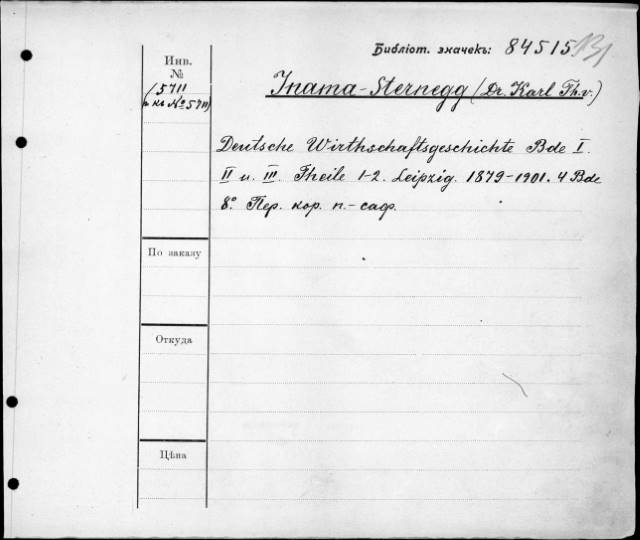 Библіот. значекъ: 84515
Инв.
№
Inama-Sternegg (Dr. Karl Th. v.)
5711
№ 5711)
Deutsche Wirthschaftsgeschichte Bde I.
II u. III. Theile 1-2. Leipzig. 1879-1901. 4 Bde
8.° Пер. кор. п.-саф.
По заказу
Откуда
Цѣна